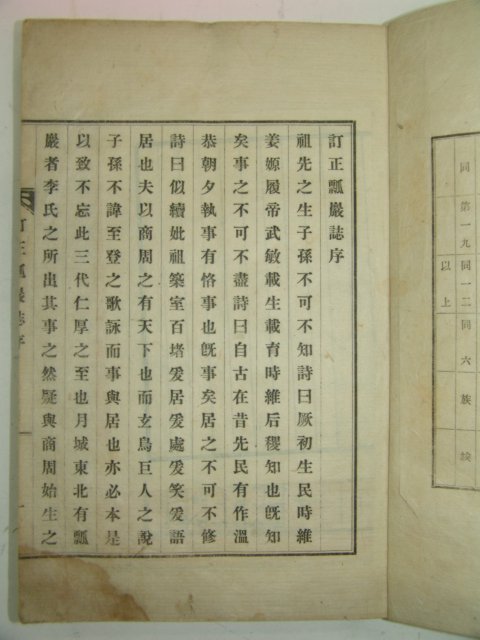 同　第一九同一二同六族談
以上
訂正瓢巖誌序
祖先之生子孫不可不知詩曰厥初生民時維
姜嫄履帝武敏載生載育時維后稷知也旣知
矣事之不可不盡詩曰自古在昔先民有作溫
恭朝夕執事有恪事也旣事矣居之不可不修
詩曰似續妣祖築室百堵爰居爰處爰笑爰語
居也夫以商周之有天下也而玄鳥巨人之說
子孫不諱至登之歌詠而事與居也亦必本是
以致不忘此三代仁厚之至也月城東北有瓢
巖者李氏之所出其事之然疑與商周始生之
訂正瓢巖誌序